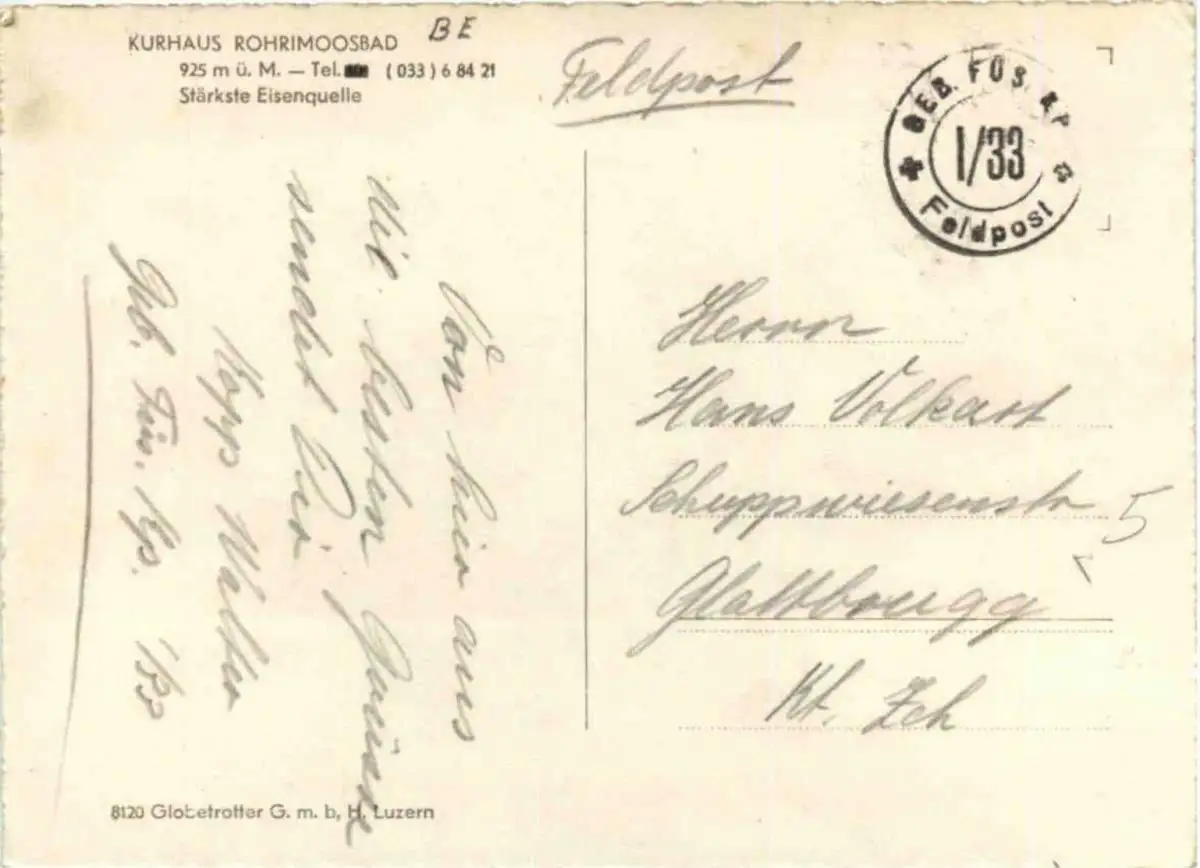 KURHAUS ROHRIMOOSBAD BE
925 m ü. M. — Tel. (033) 6 84 21
Stärkste Eisenquelle
Feldpost
GEB. FÜS. KP.
I/33
Feldpost
Von hier aus
Die besten Grüsse
sendet Dir
Kopp Walter
Geb. Füs. Kp. I/33
Herrn
Hans Volkart
Schuppwiesenstr 5
Glattbrugg
Kt. Zch
8120 Globetrotter G. m. b. H. Luzern